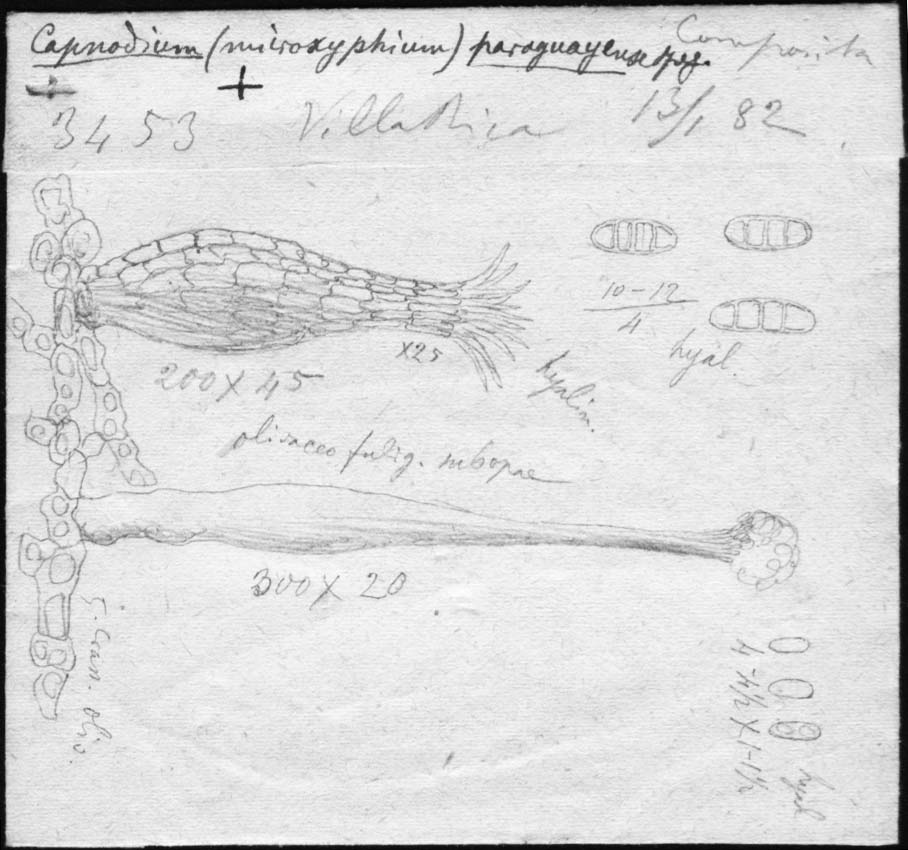 Capnodium (microxyphium) paraguayense Speg.
Composita
3453 Villa Rica 13/1 82
10-12
4
hyal.
×25
200 × 45
hyalin.
olivaceo fulig. subopac
300 × 20
oliv.
4-4½ × 1-1½
hyal